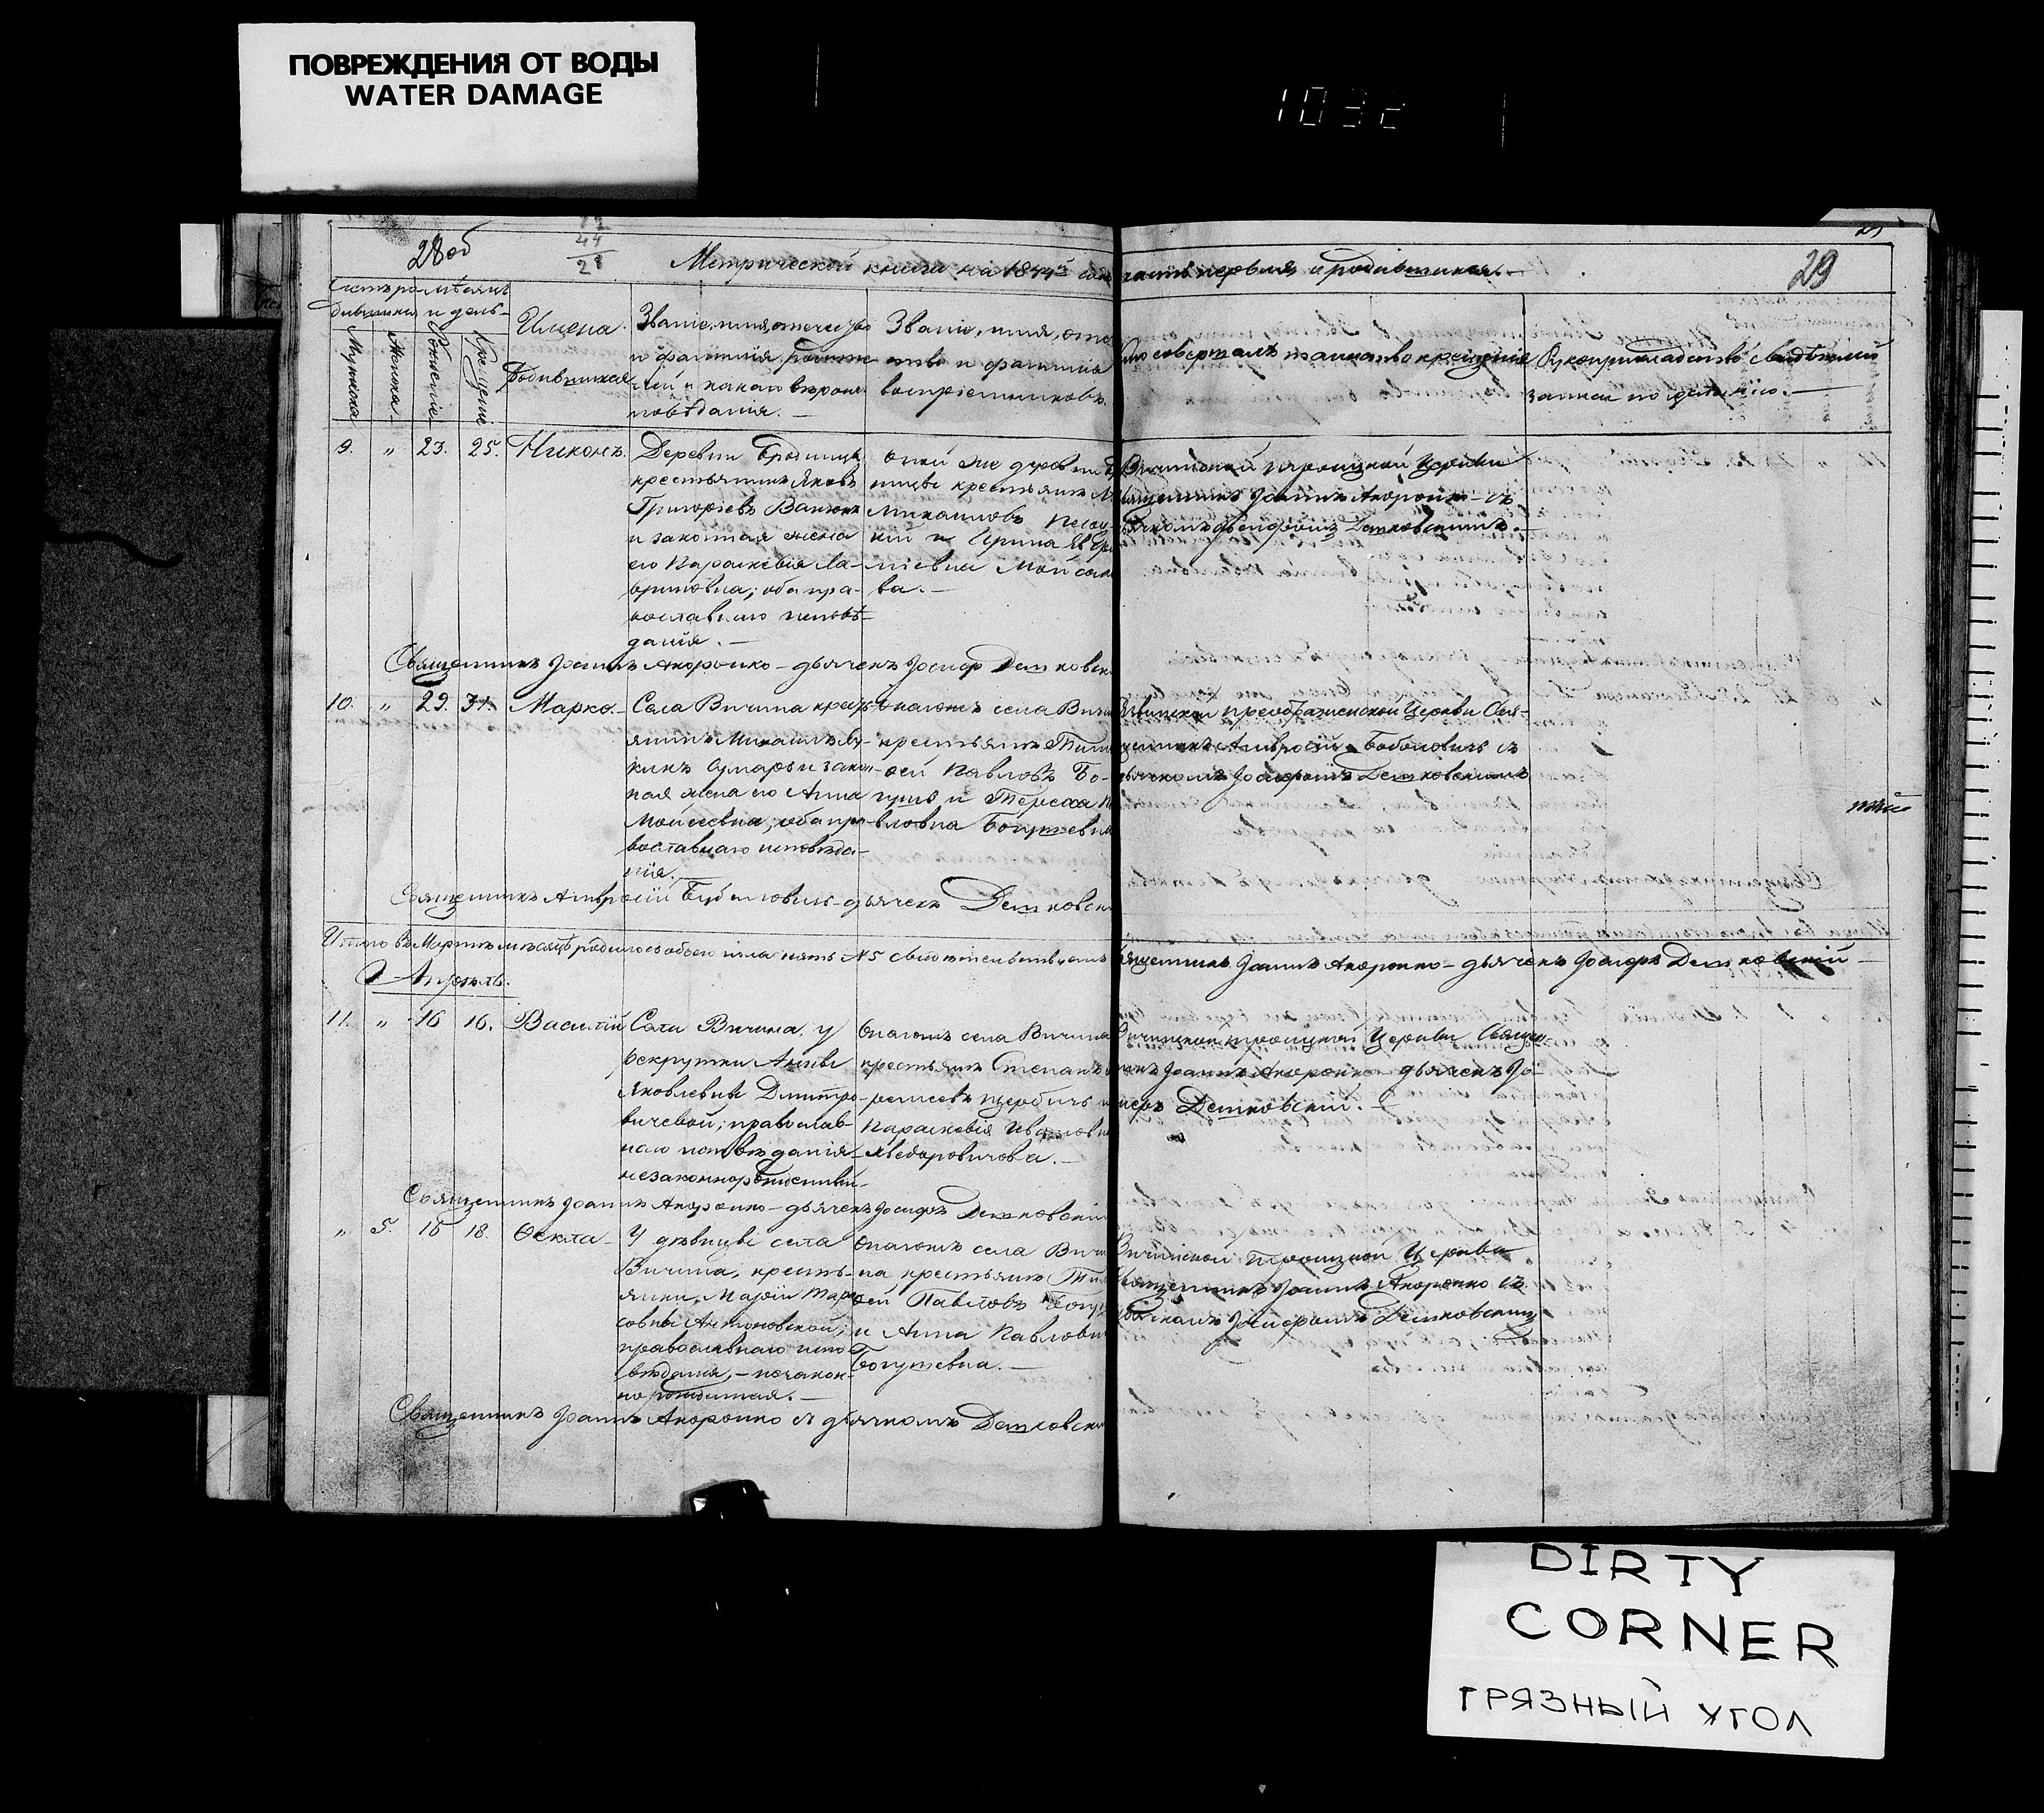 ПОВРЕЖДЕНИЯ ОТ ВОДЫ
WATER DAMAGE
1032
28об
17
44
28
Метрической книги на 1844й
часть первая о родившихся.
29
Счетъ родившихся
Мѣсяцъ и день
Мужеска
Женска
Рожденія
Крещенія
Имена
Родившихся
Званіе, имя, отечество
и фамилія родите-
лей и какого вѣроис-
повѣданія.
Званіе, имя, оте-
ство и фамилія
воспріемниковъ.
Кто совершалъ таинство крещенія
Рукоприкладство свидѣтелей
записи по желанію.
9. „ 23. 25. Никонъ.
Деревни Бродница
крестьянинъ Яковъ
Григорієвъ
и законная жена
его Параскевія Ла-
вриновна; оба пра-
вославнаго исповѣ-
данія.
оной же деревни
крестьянинъ
Михаиловъ
кій и Ирина
ва.
Вичинской троицкой Церкви
Священникъ Іоаннъ Акоронко съ
дьячкомъ Іосифомъ Демковскимъ.
Священникъ Іоаннъ Акоронко – дьячекъ Іосифъ Демковскі
10. „ 29. 31. Марко.
Села Вичина крестья-
янинъ Михаилъ
и закон-
ная жена его Анна
Моисеевна; оба пра-
вославнаго исповѣда-
нія.
Опагожъ села Вичи
крестьянинъ Тимо
фей Павловъ Бо-
гушъ и Тереса Па
вловна Богушевна
преображенской Церкви Свя-
щенникъ Амвросій Бобиловичь съ
дьячкомъ Іосифомъ Демковскимъ
Священникъ Амвросій Бобиловичь – дьячекъ Демковскі
Итого въ Мартѣ мѣсяцѣ родилось обоего пола пять №5
Священникъ Іоаннъ Акоронко – дьячекъ Іосифъ Демковскій
Апрѣль.
11. „ 16 16. Василій
Села Вичина у
рекрутки Анны
Яковлевны Дмитро-
вичевой; православ-
наго исповѣданія
незаконнорожденный
Опагожъ села Вичина
крестьянинъ Степанъ
Щербичь и
Параскевія Ивановна
Ѳедоровичова.
Вичинской троицкой Церкви Священ-
никъ Іоаннъ Акоронко дьячекъ Іо-
сифъ Демковскій.
Священникъ Іоаннъ Акоронко – дьячекъ Іосифъ Демковскій
„ 5. 15 18. Ѳекла
У дѣвицы села
Вичина, кресть-
янки Маріи Тара
совны Антоновской;
православнаго испо
вѣданія, – незакон-
норожденная.
Опагожъ села Вичи
на крестьянинъ Тимо
фей Павловъ Богу
и Анна Павловна
Богушевна.
Вичинской троицкой Церкви
Священникъ Іоаннъ Акоронко съ
дьячкомъ Іосифомъ Демковскимъ
Священникъ Іоаннъ Акоронко съ дьячкомъ Демковски
DIRTY
CORNER
ГРЯЗНЫЙ УГОЛ